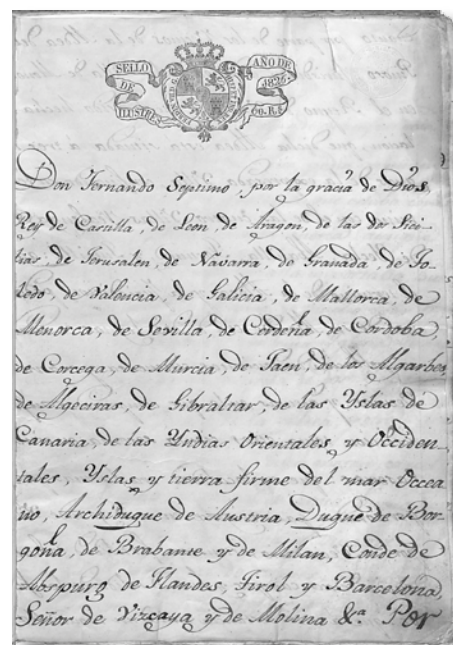 SELLO DE ILUSTRES
AÑO DE 1826. 60. Rs.
Don Fernando Septimo, por la gracia de Dios,
Rey de Castilla, de Leon, de Aragon, de las dos Sici-
lias, de Jerusalen, de Navarra, de Granada, de To-
ledo, de Valencia, de Galicia, de Mallorca, de
Menorca, de Sevilla, de Cerdeña, de Cordoba,
de Corcega, de Murcia, de Jaen, de los Algarbes,
de Algeciras, de Gibraltar, de las Yslas de
Canaria, de las Yndias Orientales y Occiden-
tales, Yslas y tierra firme del mar Occea
no, Archiduque de Austria, Duque de Bor-
goña, de Brabante y de Milan, Conde de
Abspurg de Flandes, Tirol y Barcelona,
Señor de Vizcaya y de Molina &a. Por